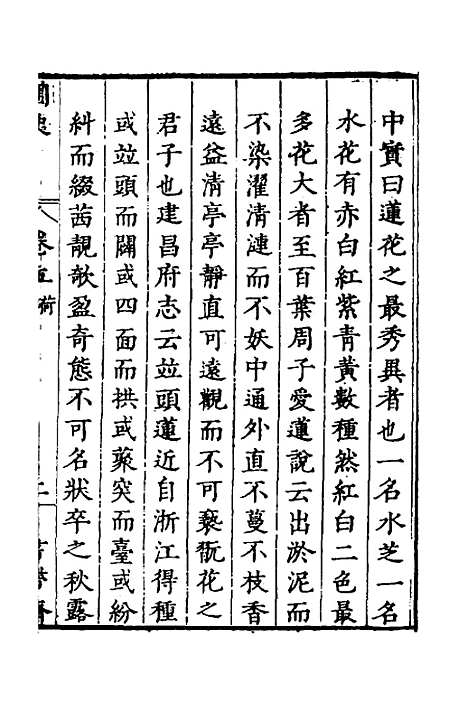 中實曰蓮花之最秀異者也一名水芝一名
水花有赤白紅紫青黃數種然紅白二色最
多花大者至百葉周子愛蓮說云出淤泥而
不染濯清漣而不妖中通外直不蔓不枝香
遠益清亭亭靜直可遠觀而不可褻翫花之
君子也建昌府志云竝頭蓮近自浙江得種
或竝頭而鬭或四面而拱或蘂突而臺或紛
糾而綴茜靚欹盈奇態不可名狀卒之秋露
卷五